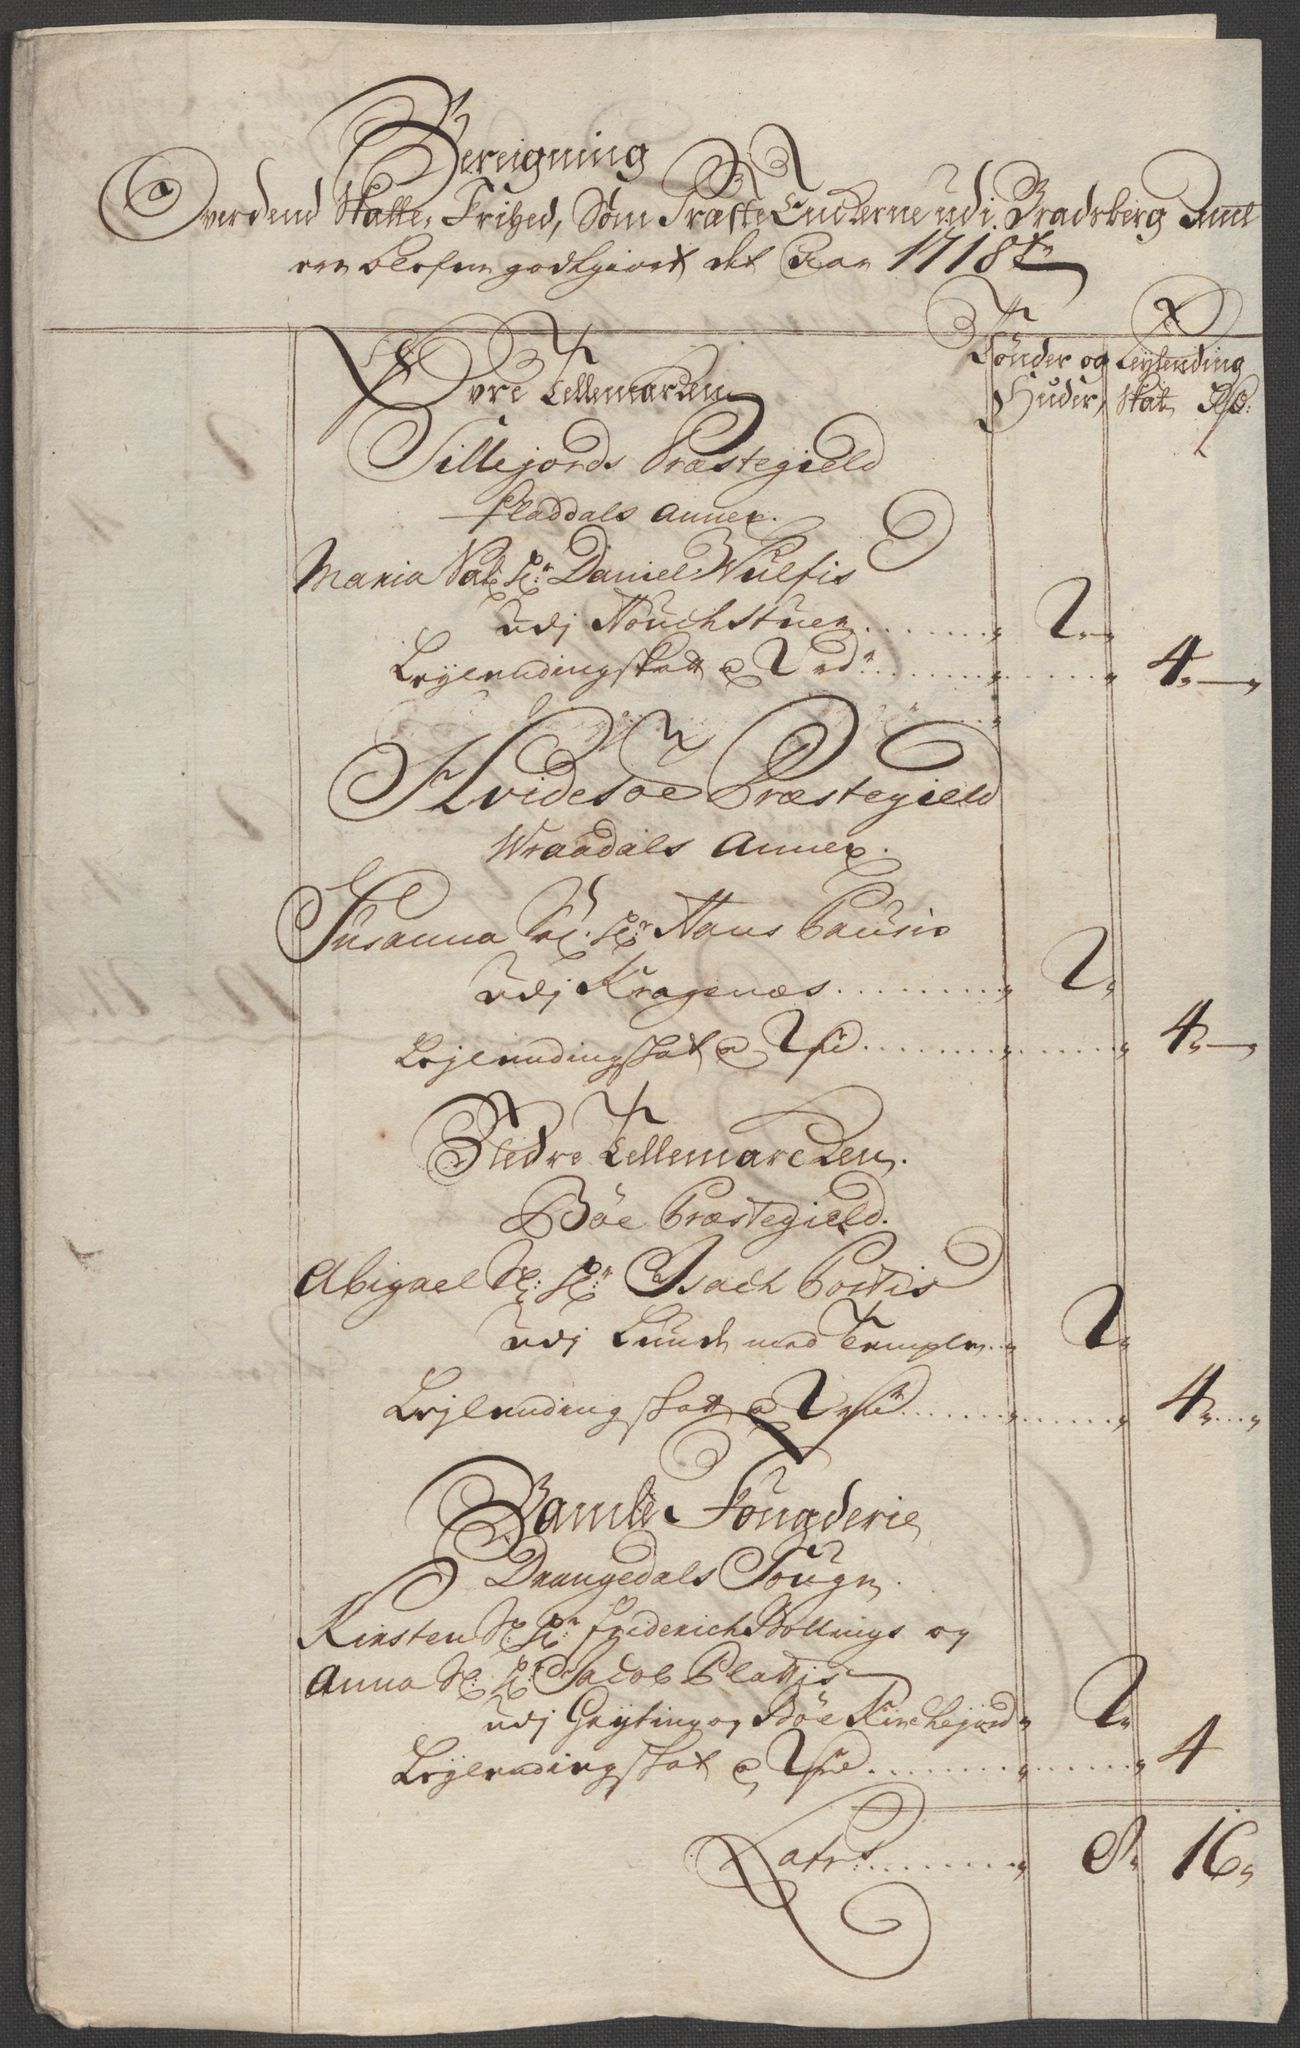 Bereigning
Over dend Skatte, Frihed, Som Præste Enckerne udi Bradsberg Amt
er blefven godtgiort det Aar 1718
Tønder og Leylending
Huder, Skat Rd:
Øvre Tellemarcken
Sillejords Præstegield
Fladdals Annex.
Maria Sal: Hr Daniel Wulfis
udj Nouchstuen 2
Leylendingskatt a 2 rdr 4
Hvidesøe Præstegield
Wraadals Annex.
Susanna Sl. Hr Hans Pausis
udj Kragenæs 2
Leylendingskat a 2 4
Nedre Tellemarcken.
Bøe Præstegield.
Abigael Sl: Hr Isach Postis
udj Lund med Temple 2
Leylendingskatt a 2 4
Bamble Fougderie
Drangedals Sougn.
Kirsten Sl: Hr Friderich Bollings og
Anna Sl: Hr Jacob Plattis
udj Gryting og Bøe Kirchejord 2
Leylendingskat a 2 4
Latris 8 16